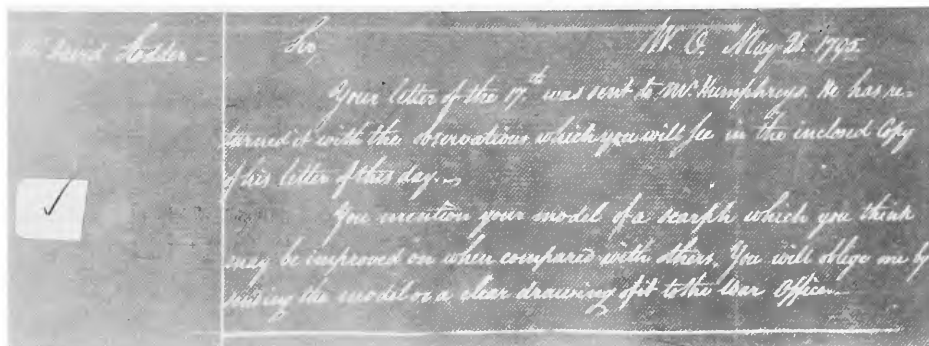 Mr. David Hodder -
Sir, W. O. May 26. 1795.
Your letter of the 17th was sent to Mr. Humphreys. He has re-
turned it with the observations which you will see in the inclosed Copy
of his letter of this day.
You mention your model of a scarph which you think
may be improved on when compared with others. You will oblige me by
sending the model or a clear drawing of it to the War Office.